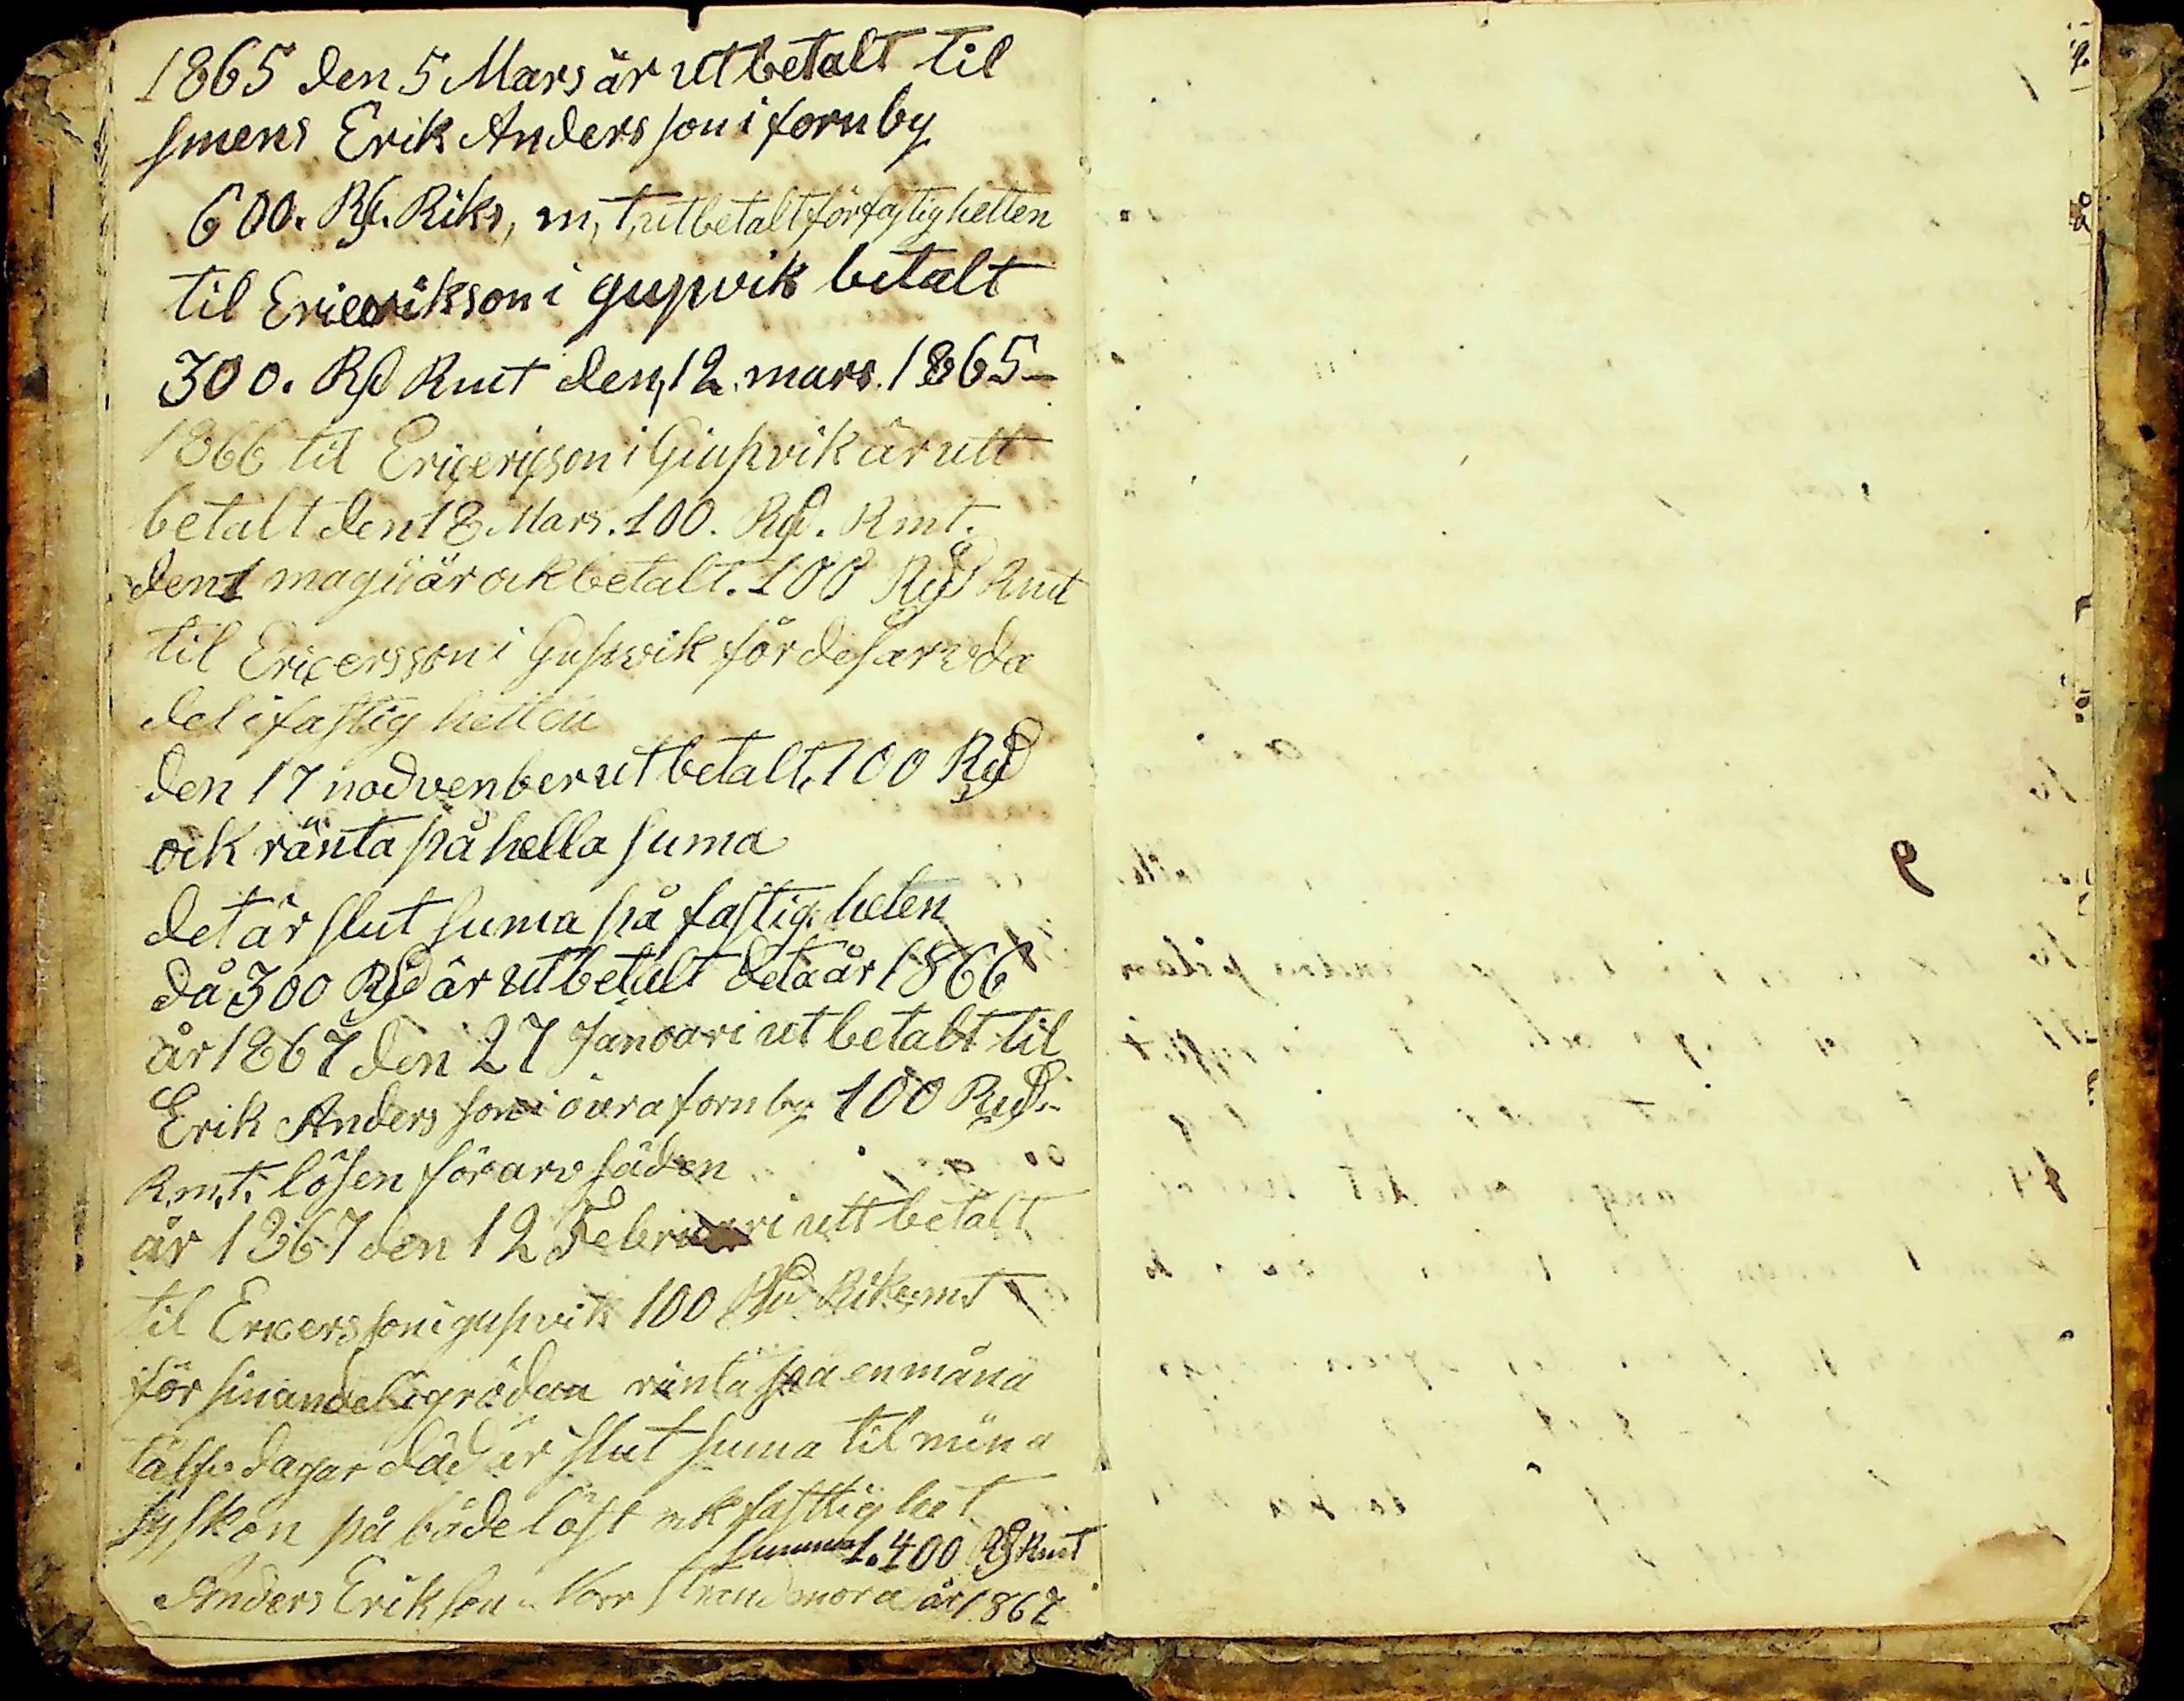 1865 den 5 Mars är utbetalt til
smens Erik Andersson i fornby
600. Rd. Riks, m, t, utbetalt för fastighetten
til Ericerikson i gupvik betalt
300. Rd Rmt den, 12. mars. 1865 —
1866 til Ericericson i Giupvik är utt
betalt den 18 Mars. 100. Rd. Rmt.
den 1 magii är ock betalt. 100 Rd Rmt
til Ericersson i Gupvik för des arvda
del i fastighetten
den 17 nodvenber utbetalt, 100 Rd
ock ränta på hella suma
det är slut suma på fastigheten
då 300 Rd är utbetalt deta år 1866
år 1867 den 27 Janoari utbetalt til
Erik Andersson i övra fornby 100 Rd.
R.m.t. lösen för arv säden
år 1867 den 12 Februari utt betalt
til Ericersson i gupvik 100 Rd Riksmt
för sin andel i grödan ränta på en måna
tålf dagar då är slut suma til mina
syskon på både löst ock fasttighet
summa 1.400 Rd Rmt
Anders Erikson Norr Strandmora år 1867